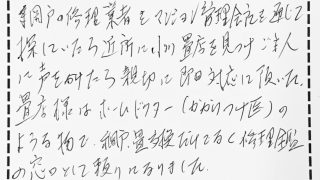 網戸の修理業者をマンション管理会社を通じて
探していたら近所に小川畳店を見つけご主人
に声をかけたら親切に即日対応に頂いた。
畳店様はホームドクター（かかりつけ医）の
ような物で、網戸、畳交換だけでなく修理全般
の窓口として頼りになりました。